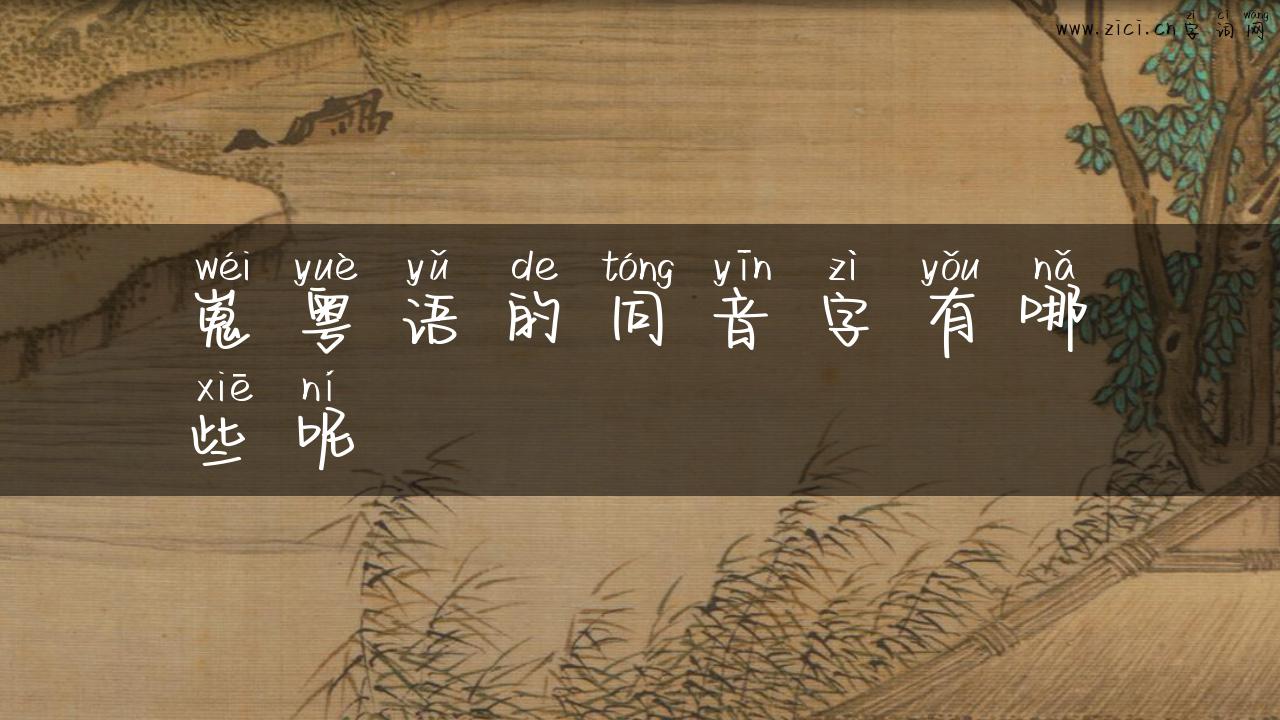 zì cí wǎng
www.zici.cn字词网
wéi yuè yǔ de tóng yīn zì yǒu nǎ
嵬粤语的同音字有哪
xiē ní
些呢